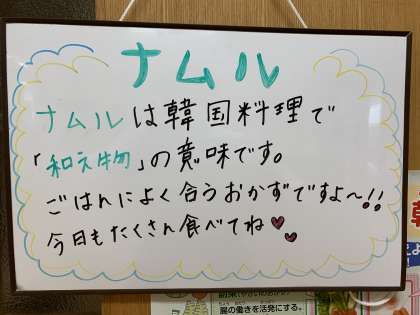 ナムル
ナムルは韓国料理で
「和え物」の意味です。
ごはんによく合うおかずですよ〜!!
今日もたくさん食べてね
腸の働きを活発にする。